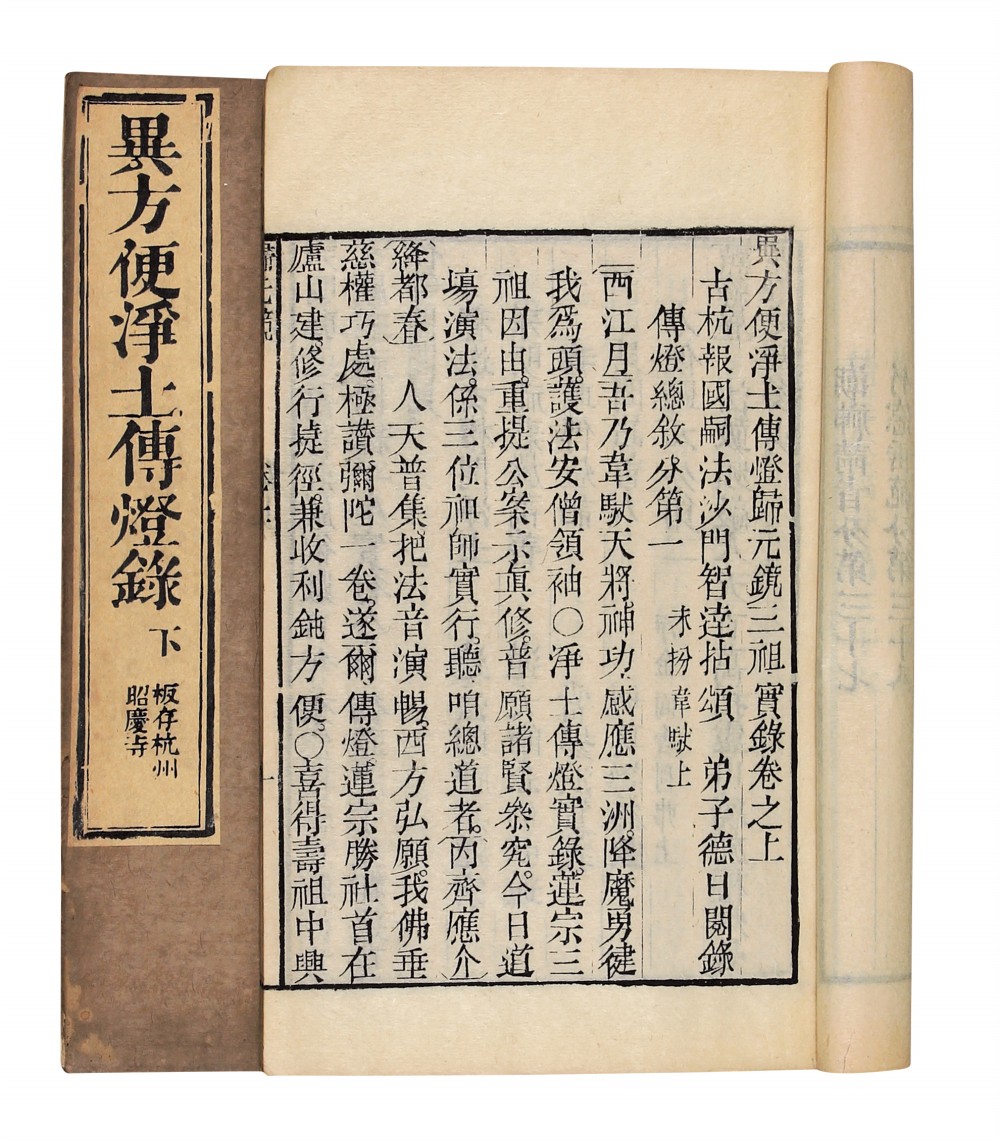 異方便淨土傳燈錄 下
板存杭州
昭慶寺
異方便淨土傳燈歸元鏡三祖實錄卷之上
古杭報國嗣法沙門智達拈頌 弟子德日閱錄
傳燈總敘分第一 末扮韋馱上
西江月吾乃韋馱天將神功感應三洲降魔勇健
我爲頭護法安僧領袖○淨土傳燈實錄蓮宗三
祖因由重提公案示眞修普願諸賢叅究今日道
塲演法係三位祖師實行聽咱總道者內齊應介
絳都春 人天普集把法音演暢西方弘願我佛垂
慈權巧處極讃彌陀一卷遂爾傳燈蓮宗勝社首在
廬山建修行㨗徑兼收利鈍方便○喜得壽祖中興
歸元鏡 卷上 一